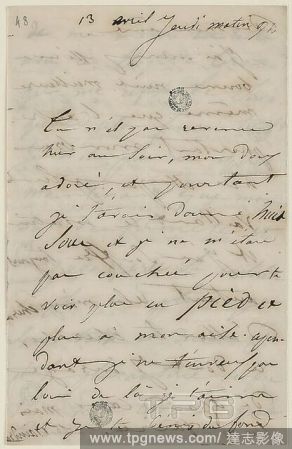 48
13 avril Jeudi matin 9 h
Tu n'es pas revenu
hier au soir, mon Toto
adoré, et pourtant
je t'avais donné huit
sous et je ne m'étais
pas couchée pour te
voir plus en pied et
plus à mon aise.
je ne
loin de là je t'aime
et je du fond
TPG
www.tpgnews.com / 達志影像